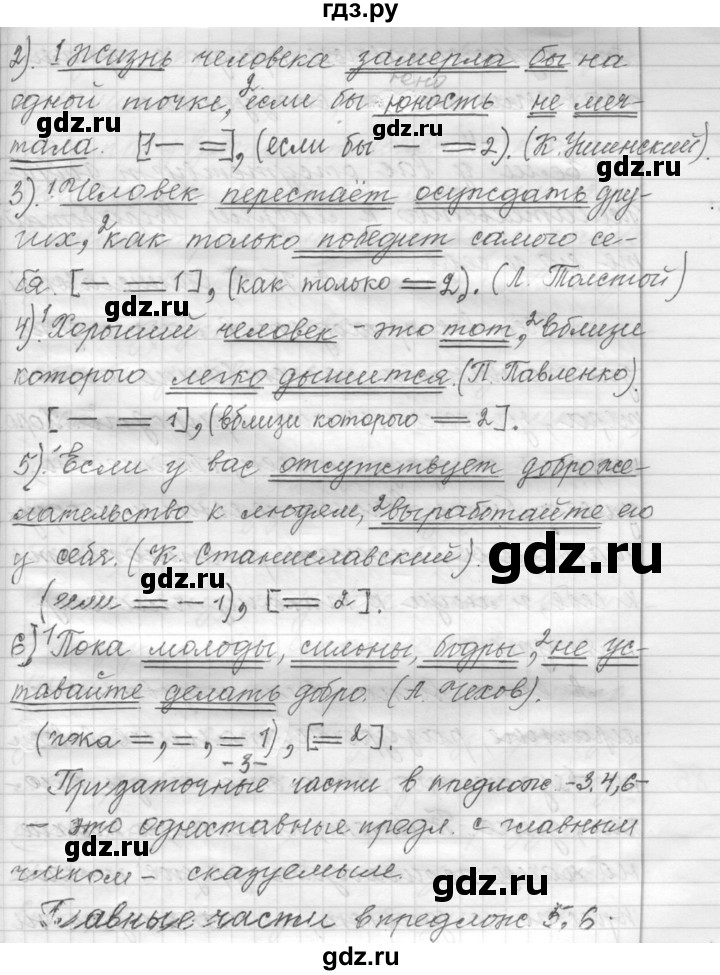 гдз.ру
2). 1 Жизнь человека замерла бы на
одной точке, 2 если бы юность не меч-
тала. [1— =], (если бы — = 2). (К. Ушинский).
3). 1 Человек перестаёт осуждать дру-
гих, 2 как только победит самого се-
бя. [— = 1], (как только = 2). (Л. Толстой)
4). 1 Хороший человек - это тот, 2 вблизи
которого легко дышится. (П. Павленко).
[— = 1], (вблизи которого = 2].
5). 1 Если у вас отсутствует доброже-
лательство к людям, 2 выработайте его
у себя. (К. Станиславский).
(если = — 1), [= 2].
6) 1 Пока молоды, сильны, бодры, 2 не ус-
тавайте делать добро. (А. Чехов).
(пока =, =, = 1), [= 2].
-3-
Придаточные части в предлож. -3.4,6-
— это односставные предл. с главным
членом – сказуемые.
Главные части в предлож 5, 6.
gdz.ru
gdz.ru
gdz.ru
gdz.ru
gdz.ru
gdz.ru
gdz.ru
gdz.ru
gdz.ru
gdz.ru
gdz.ru
gdz.ru
gdz.ru